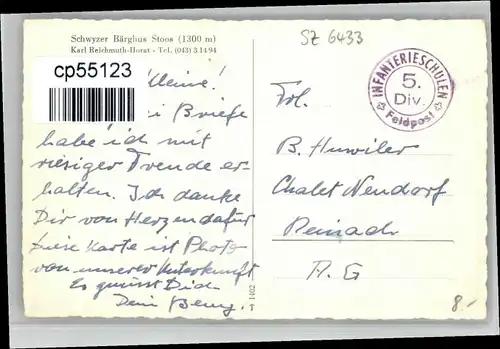 Schwyzer Bärghus Stoos (1300 m)
Karl Reichmuth-Horat - Tel. (043) 3 14 94
SZ 6433
cp55123
INFANTERIESCHULEN
5.
Div.
Feldpost
Kleine!
Briefe
habe ich mit
riesiger Freude er-
halten. Ich danke
Dir von Herzen dafür
Diese Karte ist Photo
von unserer Unterkunft
Es grüsst Dich
Dein Beny.
Frl.
B. Huwiler
Chalet Neudorf
Reinach
A. G
1402
8.-